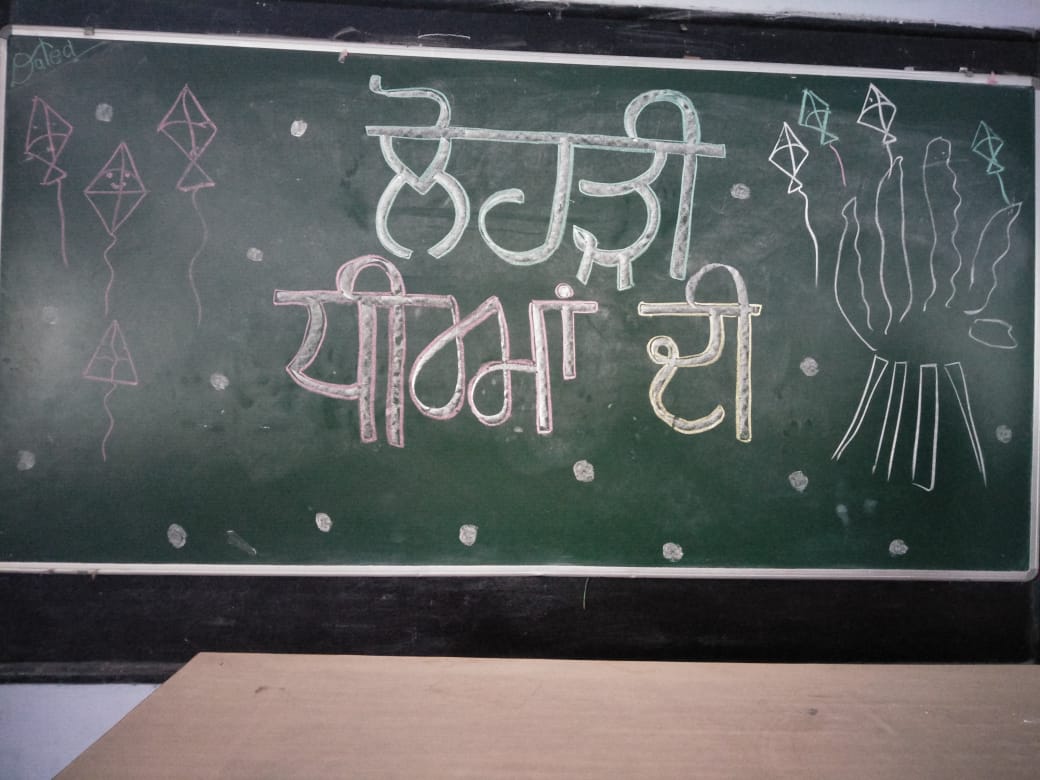 Dated
ਲੋਹੜੀ
ਧੀਆਂ ਦੀ